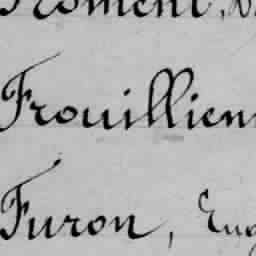 Froment,
Frouillien
Furon, Eug